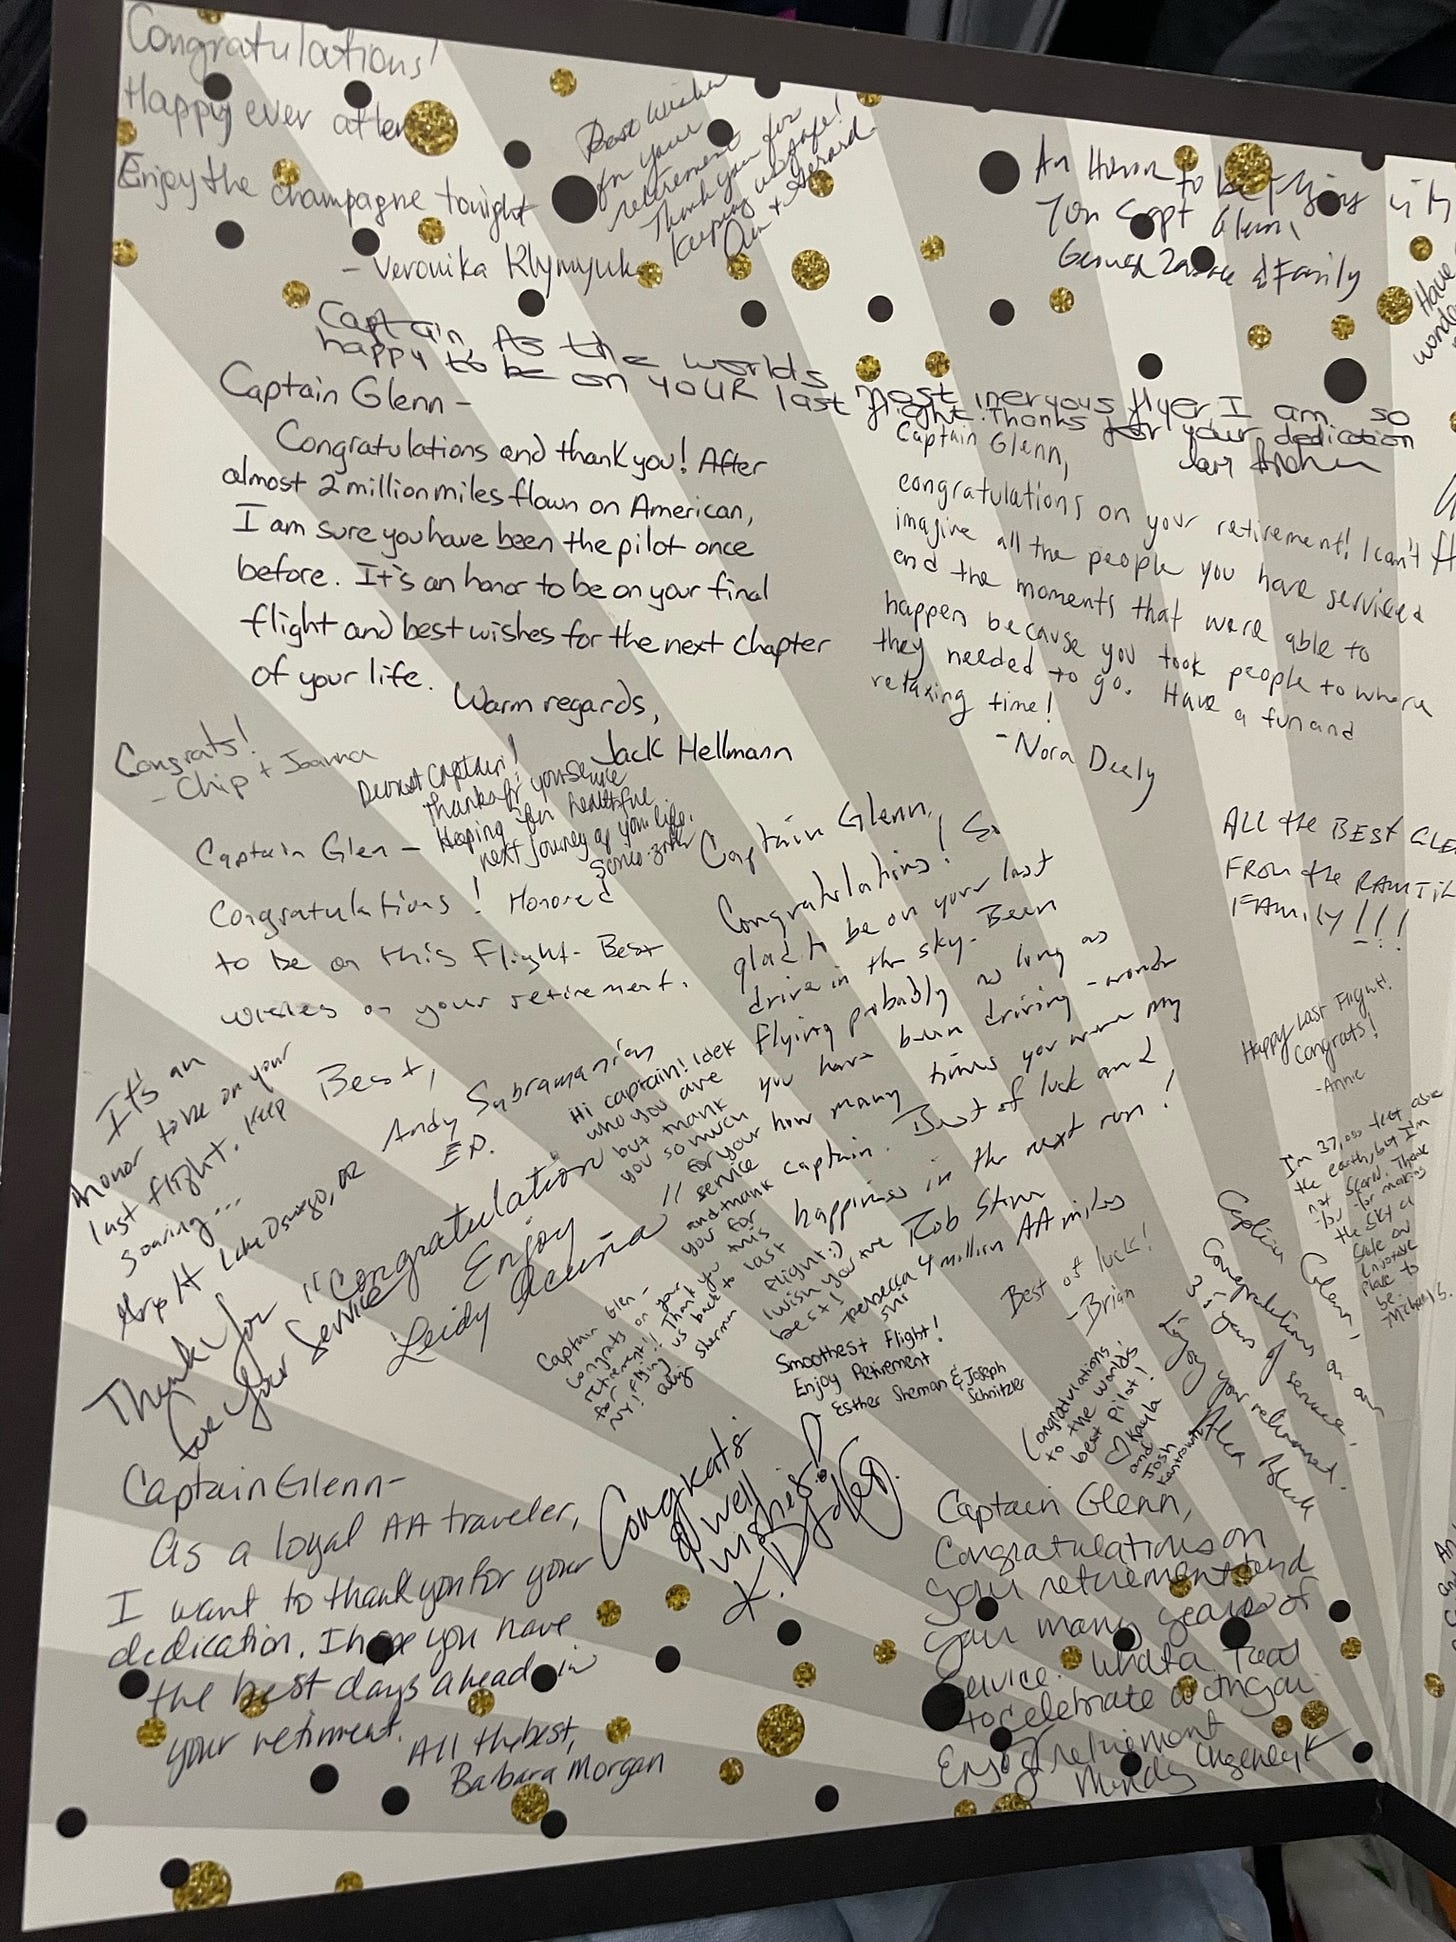 Congratulations!
Happy ever after
Enjoy the champagne tonight
- Veronika Klymyuk
Best wishes
for your
retirement
Thank you for
keeping us safe!
+ Gerard
An Honor to be flying with
You Capt Glenn,
& Family
Have
Captain As the worlds most nervous flyer, I am so
happy to be on YOUR last flight. Thanks for your dedication
Captain Glenn -
Congratulations and thank you! After
almost 2 million miles flown on American,
I am sure you have been the pilot once
before. It's an honor to be on your final
flight and best wishes for the next chapter
of your life.
Warm regards,
Jack Hellmann
Captain Glenn,
congratulations on your retirement! I can't
imagine all the people you have serviced
and the moments that were able to
happen because you took people to where
they needed to go. Have a fun and
relaxing time!
- Nora Deely
Congrats!
- Chip + Joanna
Dearest Captain!
Thanks for your service
Hoping for healthful
next journey of your life.
Captain Glen -
Congratulations! Honored
to be on this flight - Best
wishes on your retirement.
Best,
Andy Subramanian
Captain Glenn,
Congratulations! So
glad to be on your last
drive in the sky. Been
flying probably as long as
you have been driving - wonder
how many times you were my
captain. Best of luck and
happiness in the next run!
Rob
4 million AA miles
ALL the BEST
FROM the
FAMILY!!!
Happy Last Flight!
Congrats!
- Annie
I'm 37,000 feet above
the earth, but I'm
not scared. Thank
you for making
the sky a
safe
place to
be.
- Michael S.
It's an
honor to be on your
last flight. Keep
soaring...
Lake Oswego, OR
"Congratulations"
Enjoy
Leidy Acuña
Thank You
for Your Service
Hi captain! Idek
who you are
but thank
you so much
for your
service
and thank
you for
this
last
flight :)
I wish you the
best!
Rebecca
Captain Glen -
Congrats on your
retirement!! Thank you
for flying us back to
NY!
Sherman
Smoothest Flight!
Enjoy Retirement
Esther Sherman & Joseph
Schnitzler
Best of luck!
- Brian
Congratulations
to the world's
best pilot!
♡ Kayla
and
Josh
Kantrowitz
Captain Glenn,
Congratulations on
years of service.
Enjoy your retirement.
Alex
Captain Glenn -
As a loyal AA traveler,
I want to thank you for your
dedication. I hope you have
the best days ahead in
your retirment.
All the best,
Barbara Morgan
Congrats
& well
wishes!
Captain Glenn,
Congratulations on
your retirement and
your many years of
service. What a
to celebrate
Enjoy retirement
Mindy